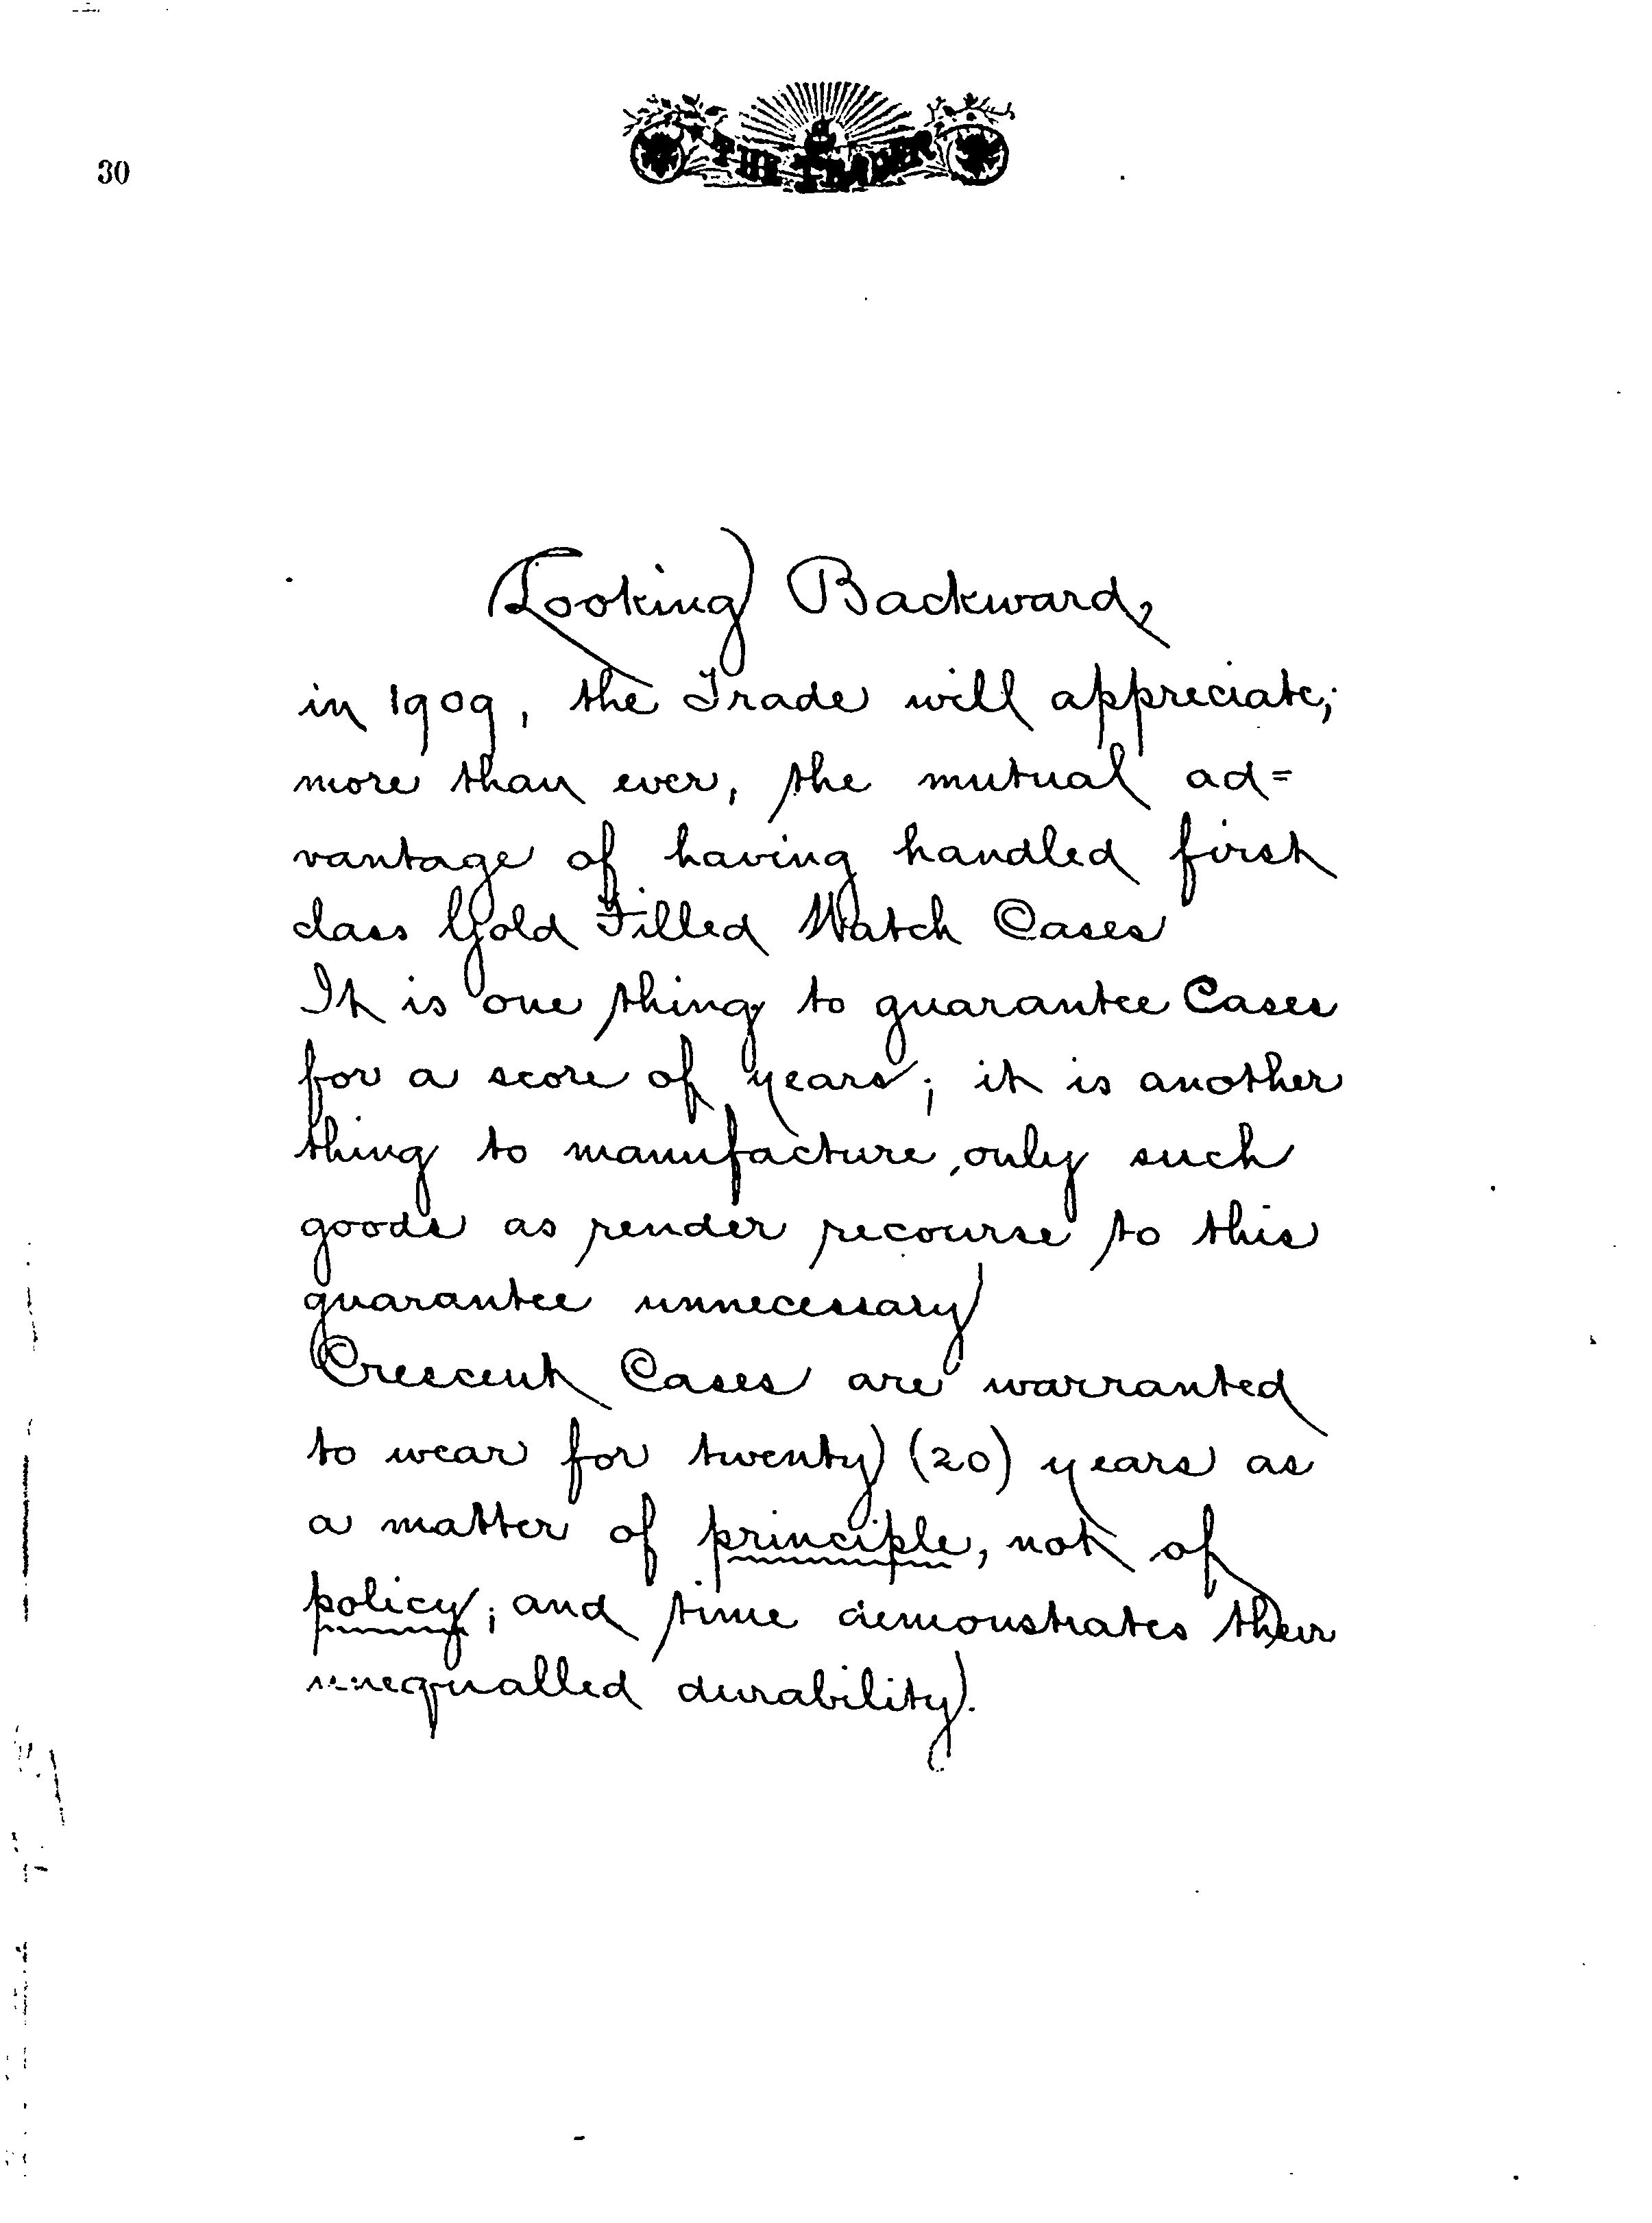 30
THE TRADER
Looking Backward,
in 1909, the Trade will appreciate,
more than ever, the mutual ad=
vantage of having handled first
class Gold Filled Watch Cases
It is one thing to guarantee Cases
for a score of years; it is another
thing to manufacture only such
goods as render recourse to this
guarantee unnecessary
Crescent Cases are warranted
to wear for twenty (20) years as
a matter of principle, not of
policy; and time demonstrates their
unequalled durability.